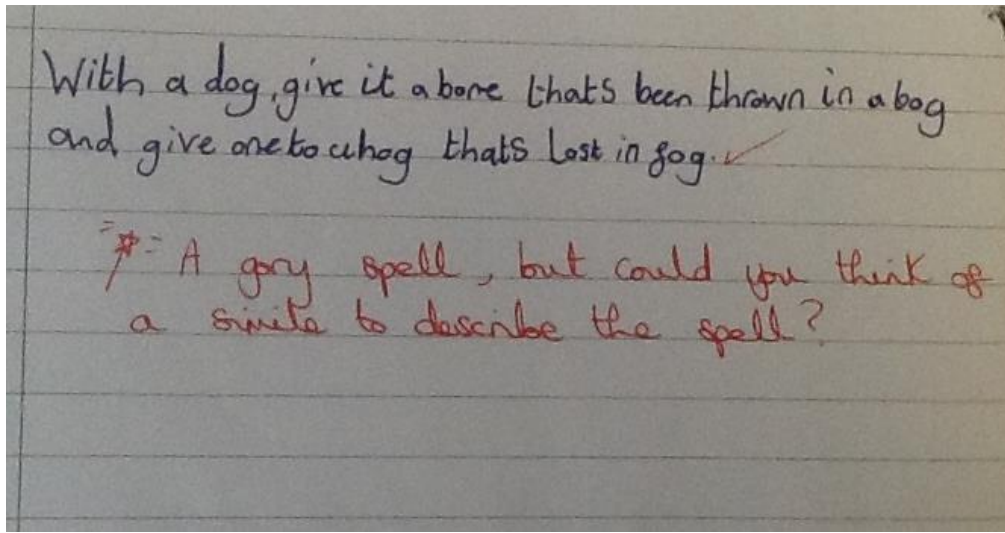 With a dog, give it a bone thats been thrown in a bog
and give one to a hog thats Lost in fog.
A gory spell, but could you think of
a simile to describe the spell?